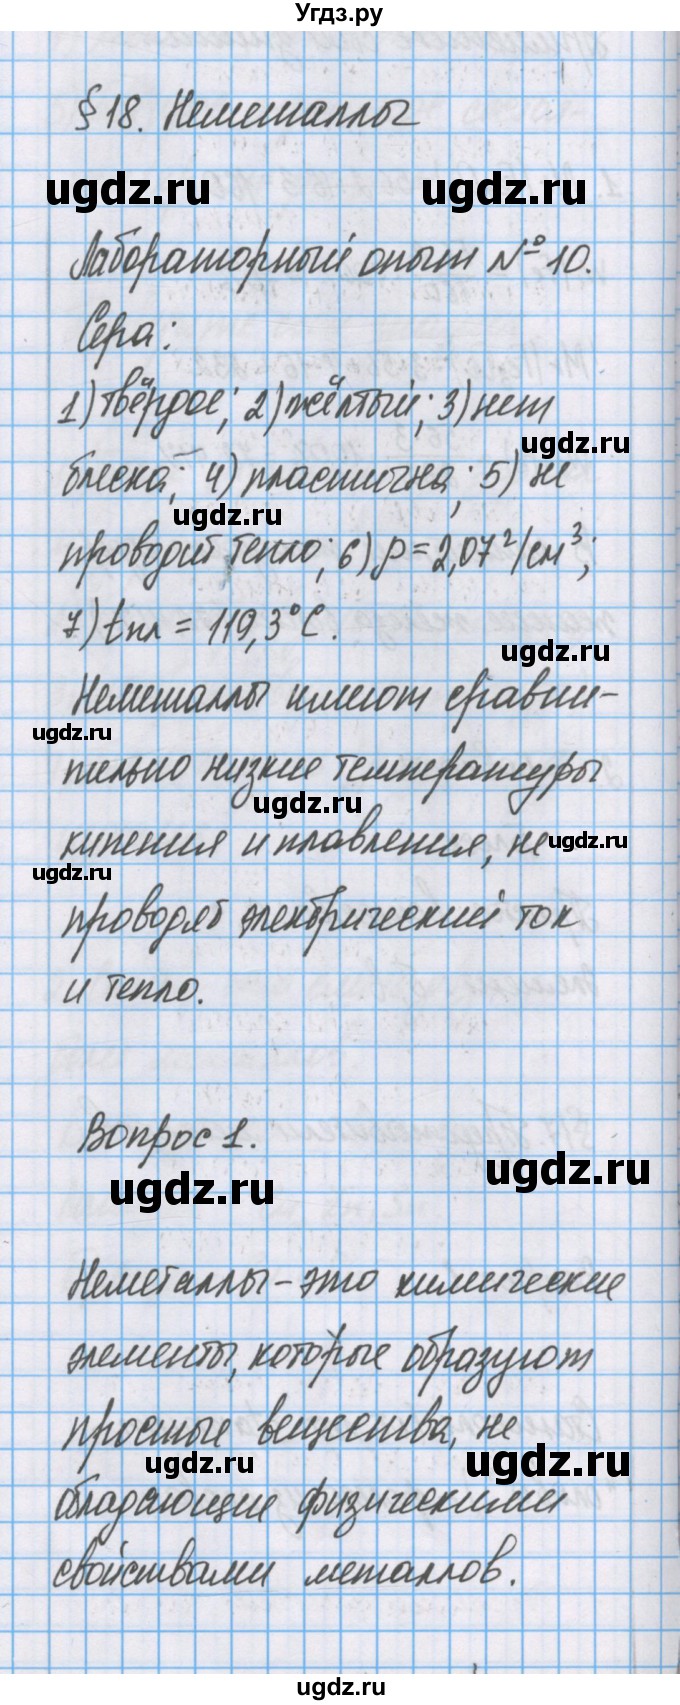 Угдз.ру
§18. Неметаллы
ugdz.ru ugdz.ru
Лабораторный опыт №10.
Сера:
1) твёрдое; 2) жёлтый; 3) нет
ugdz.ru
блеска; 4) пластична; 5) не
ugdz.ru
проводит тепло; 6) ρ = 2,07 г/см³;
7) tпл = 119,3°С.
ugdz.ru
Неметаллы имеют сравни-
ugdz.ru
тельно низкие температуры
ugdz.ru
кипения и плавления, не
ugdz.ru
ugdz.ru
проводят электрический ток
и тепло.
Вопрос 1.
ugdz.ru
ugdz.ru
Неметаллы – это химические
элементы, которые образуют
простые вещества, не
ugdz.ru ugdz.ru
обладающие физическими
свойствами металлов.
ugdz.ru